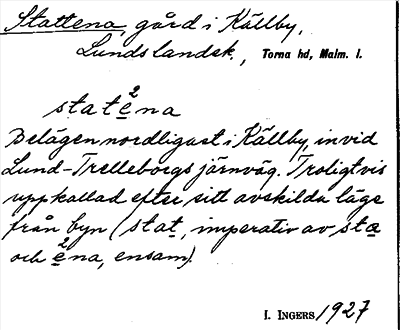 Stattena, gård i Källby,
Lunds landsk., Torna hd, Malm. l.
statè²na
Belägen nordligast i Källby, invid
Lund-Trelleborgs järnväg. Troligtvis
uppkallad efter sitt avskilda läge
från byn (stat, imperativ av stæ
och è²na, ensam).
I. INGERS 1927